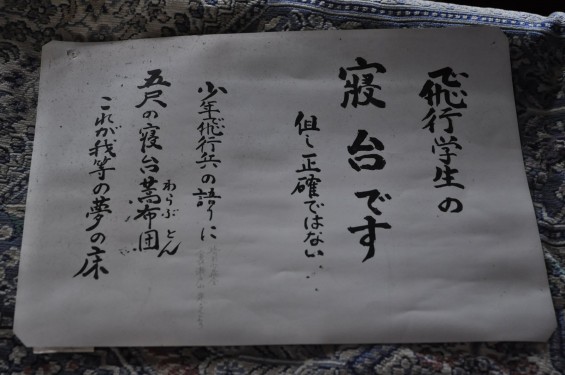 飛行学生の
寝台です
但し正確ではない...
少年飛行兵の語りに
五尺の寝台藁布団
わらぶとん
これが我等の夢の床